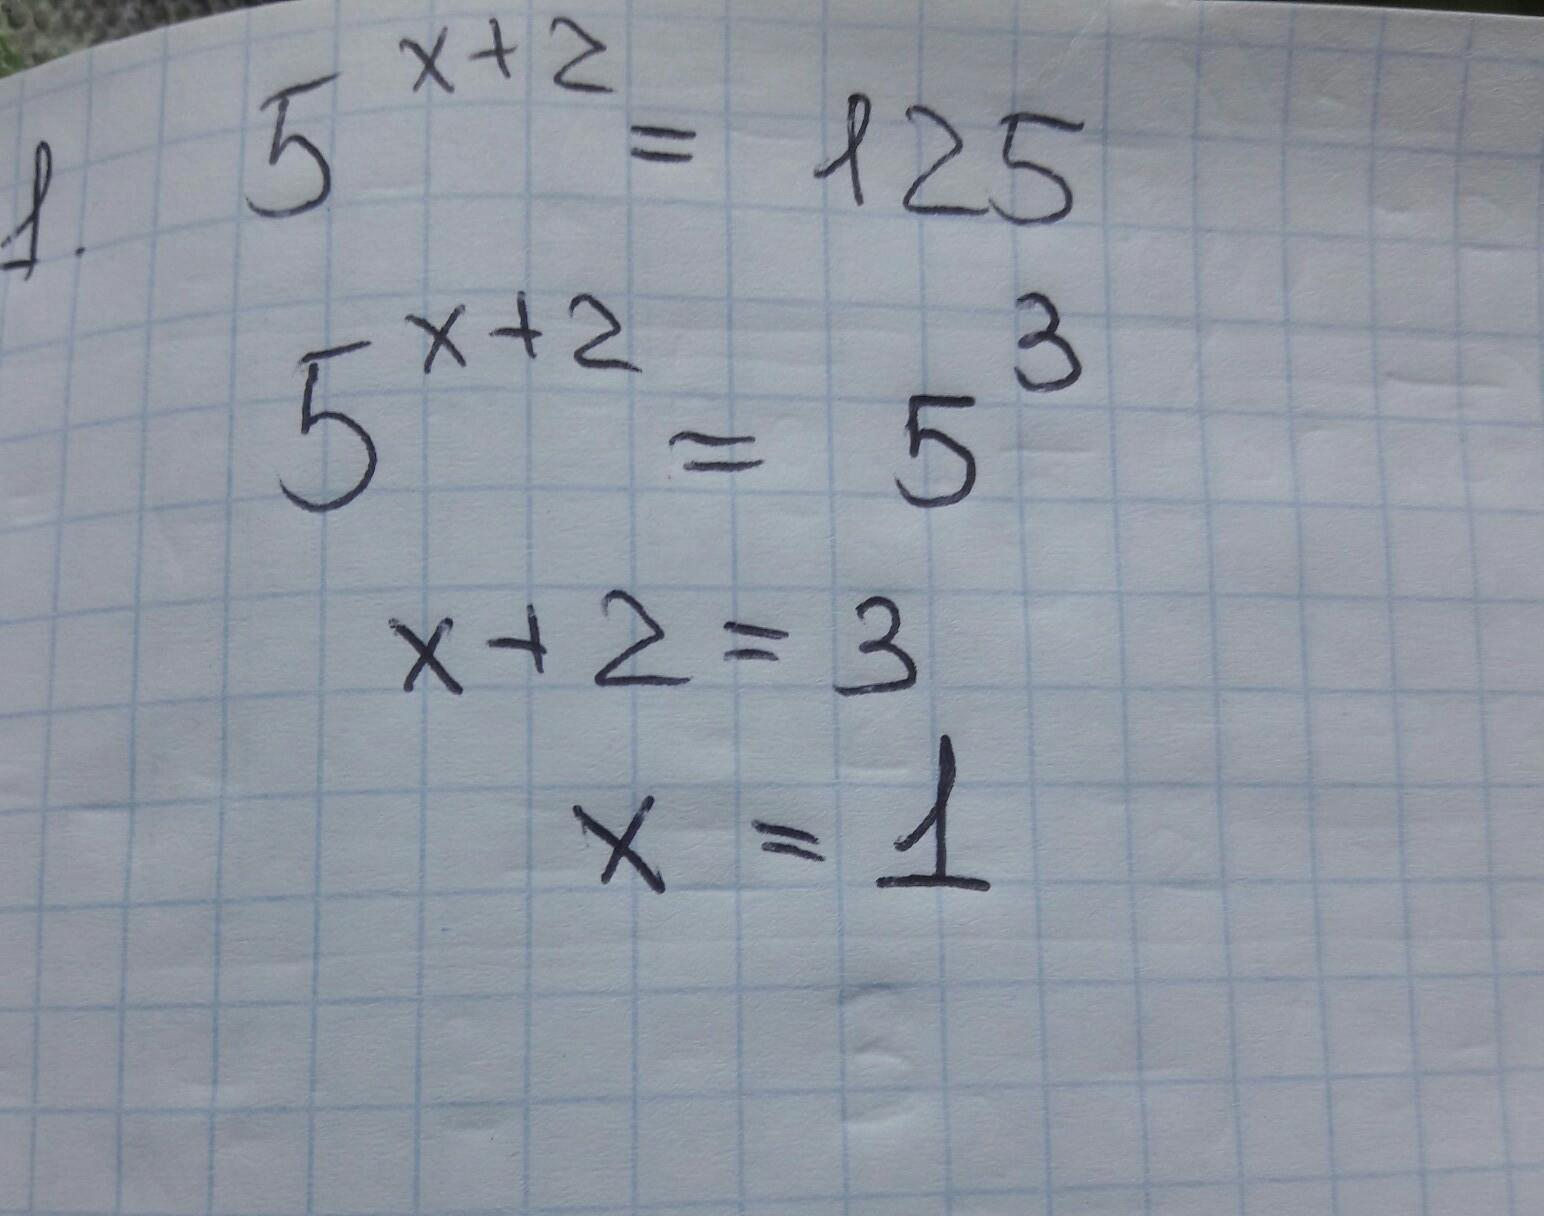 1. 5^{x+2} = 125
5^{x+2} = 5^3
x+2=3
x = 1